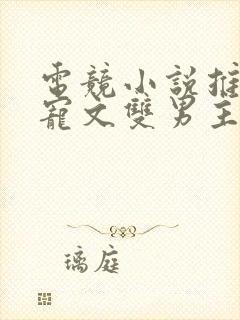 電競小說推
寵文雙男主
璃庭